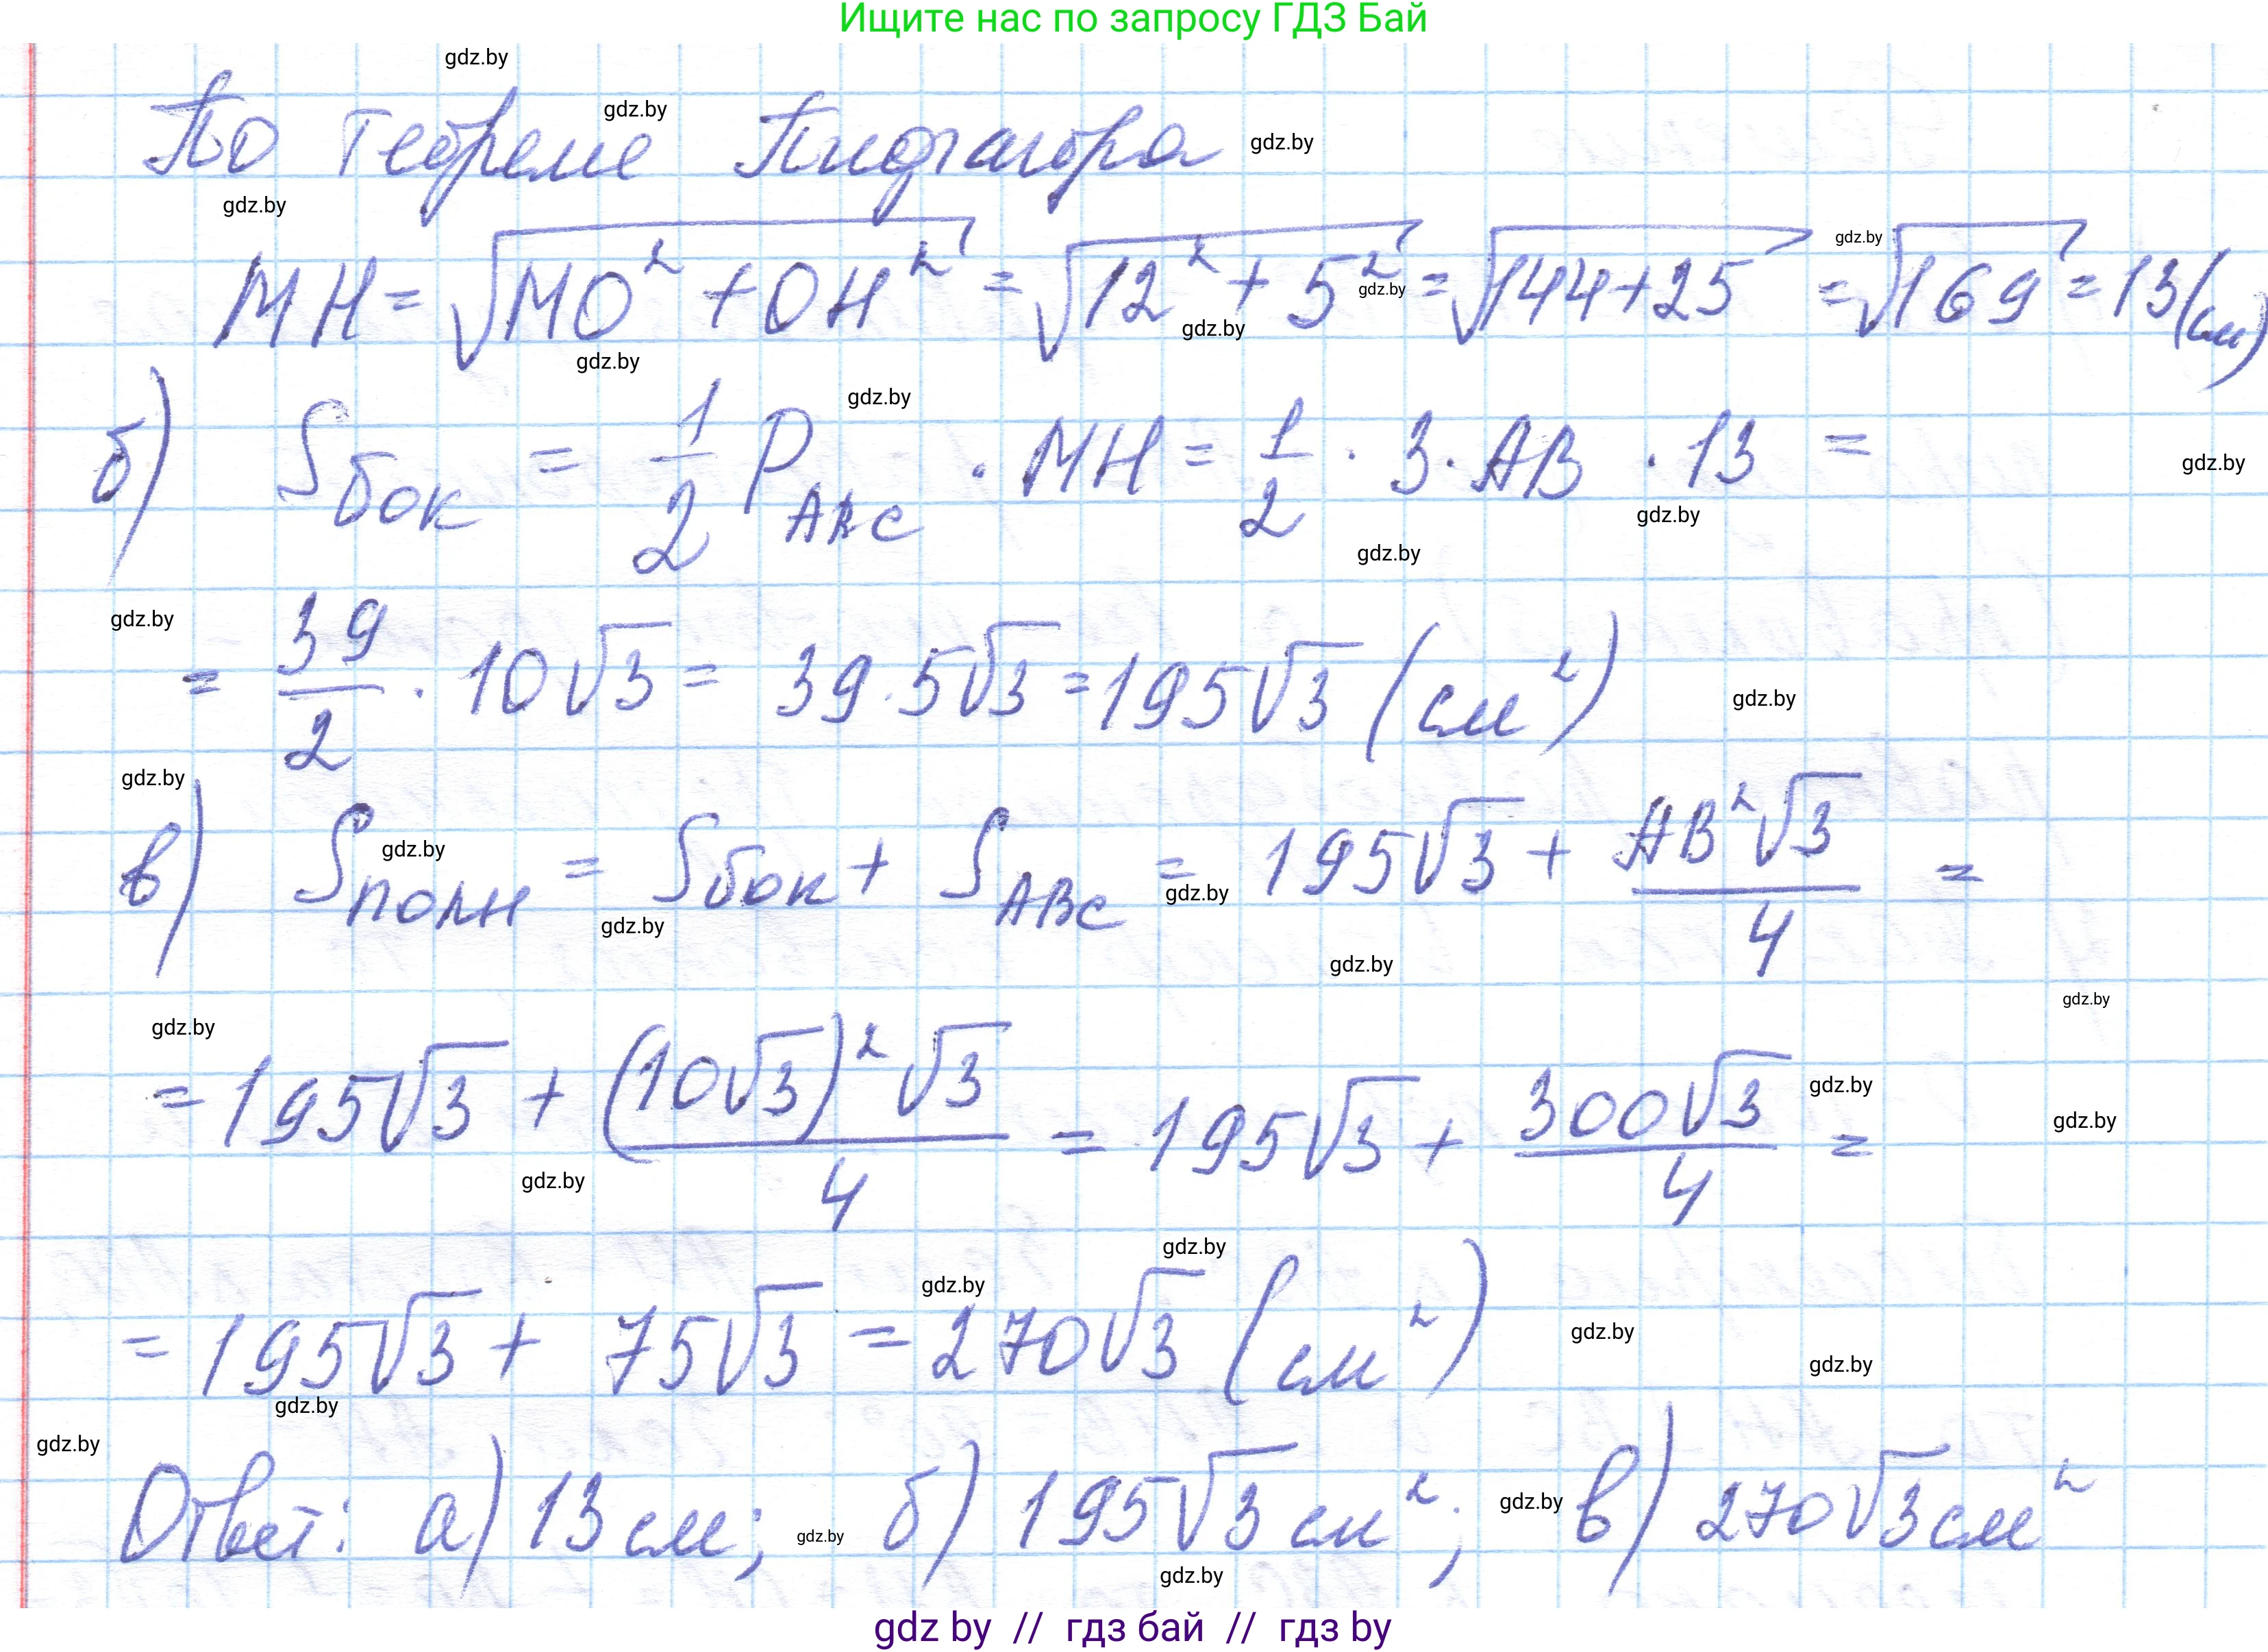 Ищите нас по запросу ГДЗ Бай
gdz.by
По теореме Пифагора
gdz.by
gdz.by
gdz.by
MH = √(MO² + OH²) = √(12² + 5²) = √(144+25) = √169 = 13(см)
gdz.by
gdz.by
gdz.by
gdz.by
gdz.by
б) Sбок = 1/2 P_ABC · MH = 1/2 · 3 · AB · 13 =
gdz.by
gdz.by
gdz.by
gdz.by
= 39/2 · 10√3 = 39·5√3 = 195√3 (см²)
gdz.by
gdz.by
в) Sполн = Sбок + S_ABC = 195√3 + AB²√3/4 =
gdz.by
gdz.by
gdz.by
gdz.by
gdz.by
gdz.by
= 195√3 + (10√3)²√3/4 = 195√3 + 300√3/4 =
gdz.by
gdz.by
gdz.by
gdz.by
gdz.by
= 195√3 + 75√3 = 270√3 (см²)
gdz.by
gdz.by
gdz.by
gdz.by
Ответ: а) 13 см; б) 195√3 см²; в) 270√3 см²
gdz.by
gdz.by
gdz.by
gdz by // гдз бай // гдз by